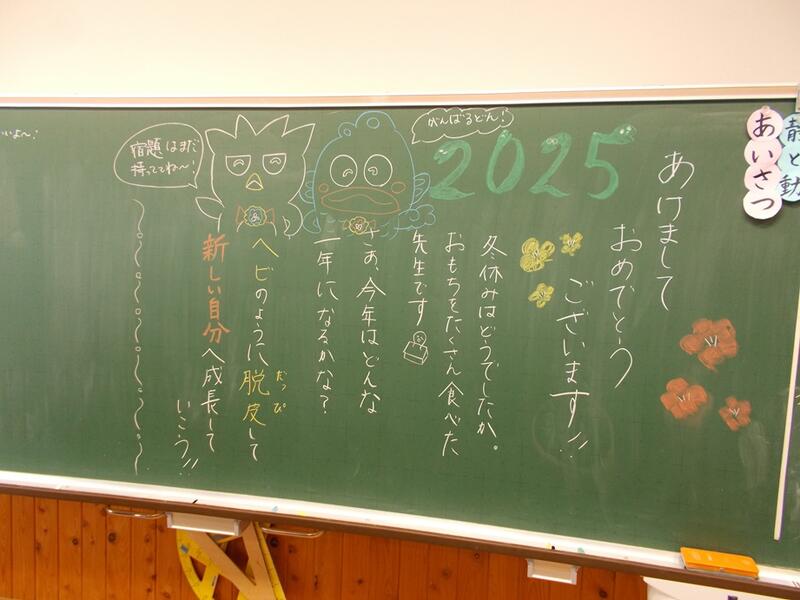 静と動
あいさつ
あけまして
おめでとう
ございます!!
2025
がんばるどん!
冬休みはどうでしたか。
おもちをたくさん食べた
先生です
さぁ、今年はどんな
一年になるかな?
ヘビのように脱皮して
だっぴ
新しい自分へ成長して
いこう!!
宿題はまだ
持っててね〜!